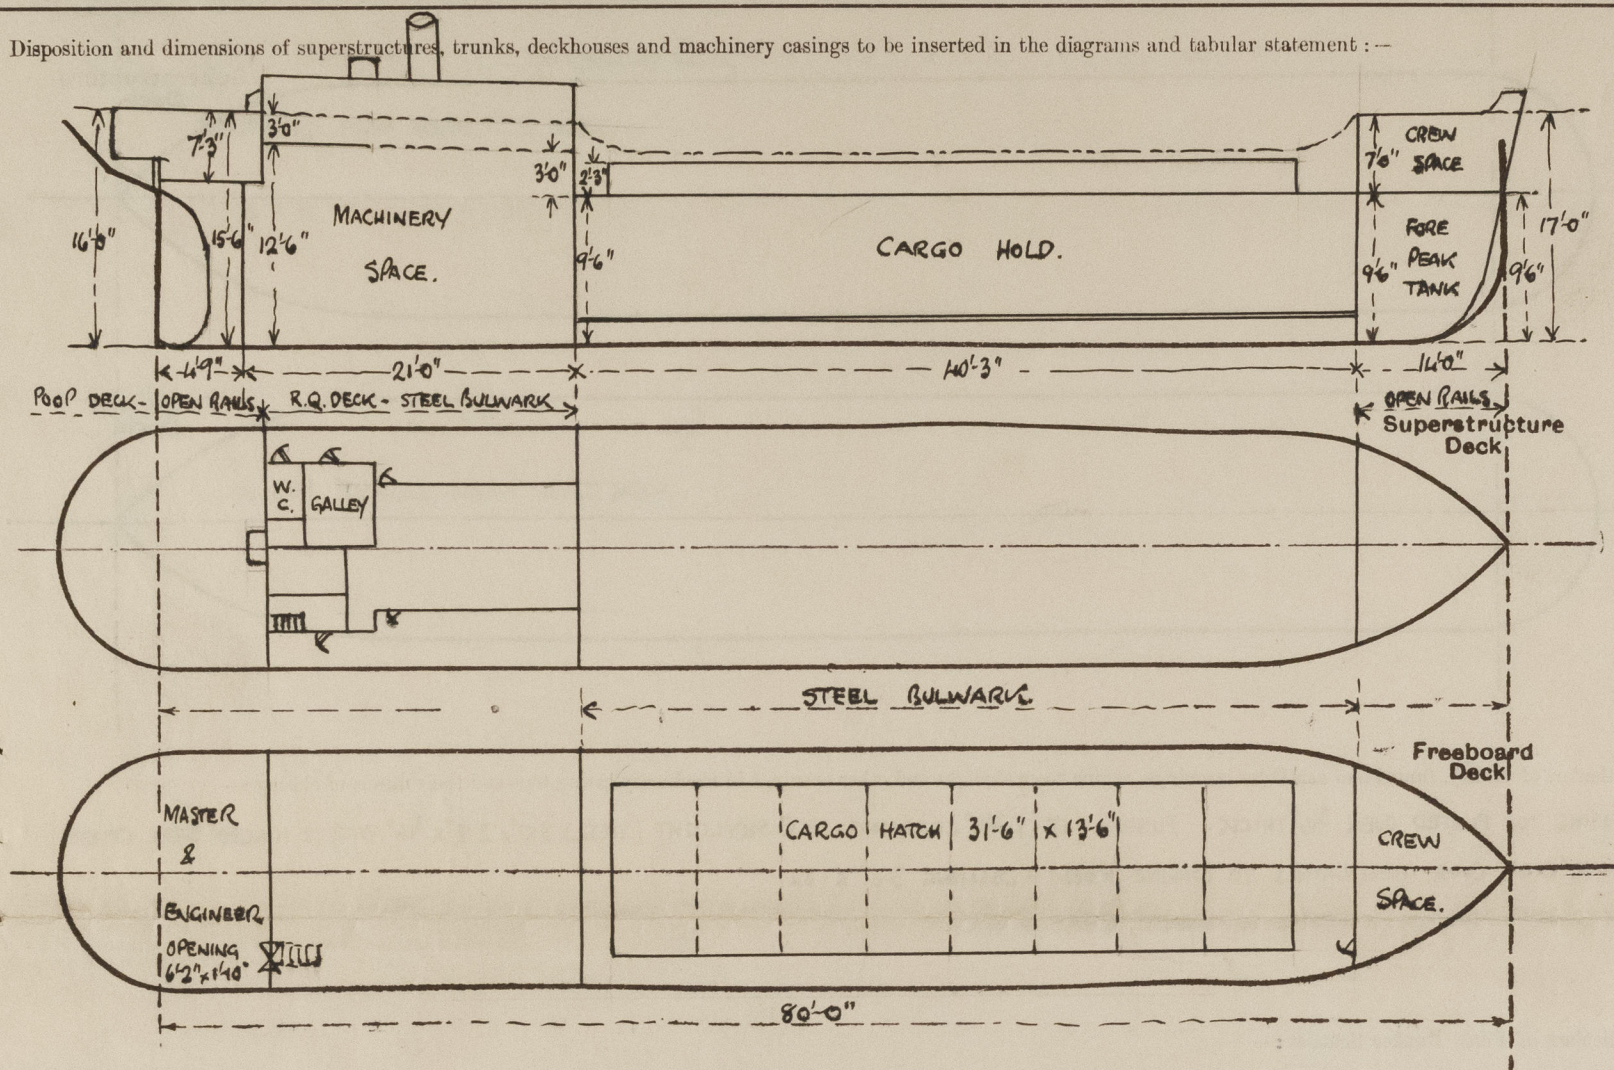 Disposition and dimensions of superstructures, trunks, deckhouses and machinery casings to be inserted in the diagrams and tabular statement :—
7'3"
3'0"
3'0"
2'3"
7'0"
CREW
SPACE
16'0"
15'6"
12'6"
MACHINERY
SPACE.
9'6"
CARGO HOLD.
9'6"
FORE
PEAK
TANK
9'6"
17'0"
4'9"
21'0"
40'3"
14'0"
POOP DECK - OPEN RAILS
R.Q. DECK - STEEL BULWARK
OPEN RAILS
Superstructure
Deck
W.
C.
GALLEY
STEEL BULWARK
Freeboard
Deck
MASTER
&
ENGINEER
OPENING
6'2" x 1'10"
CARGO HATCH 31'6" x 13'6"
CREW
SPACE.
80'0"